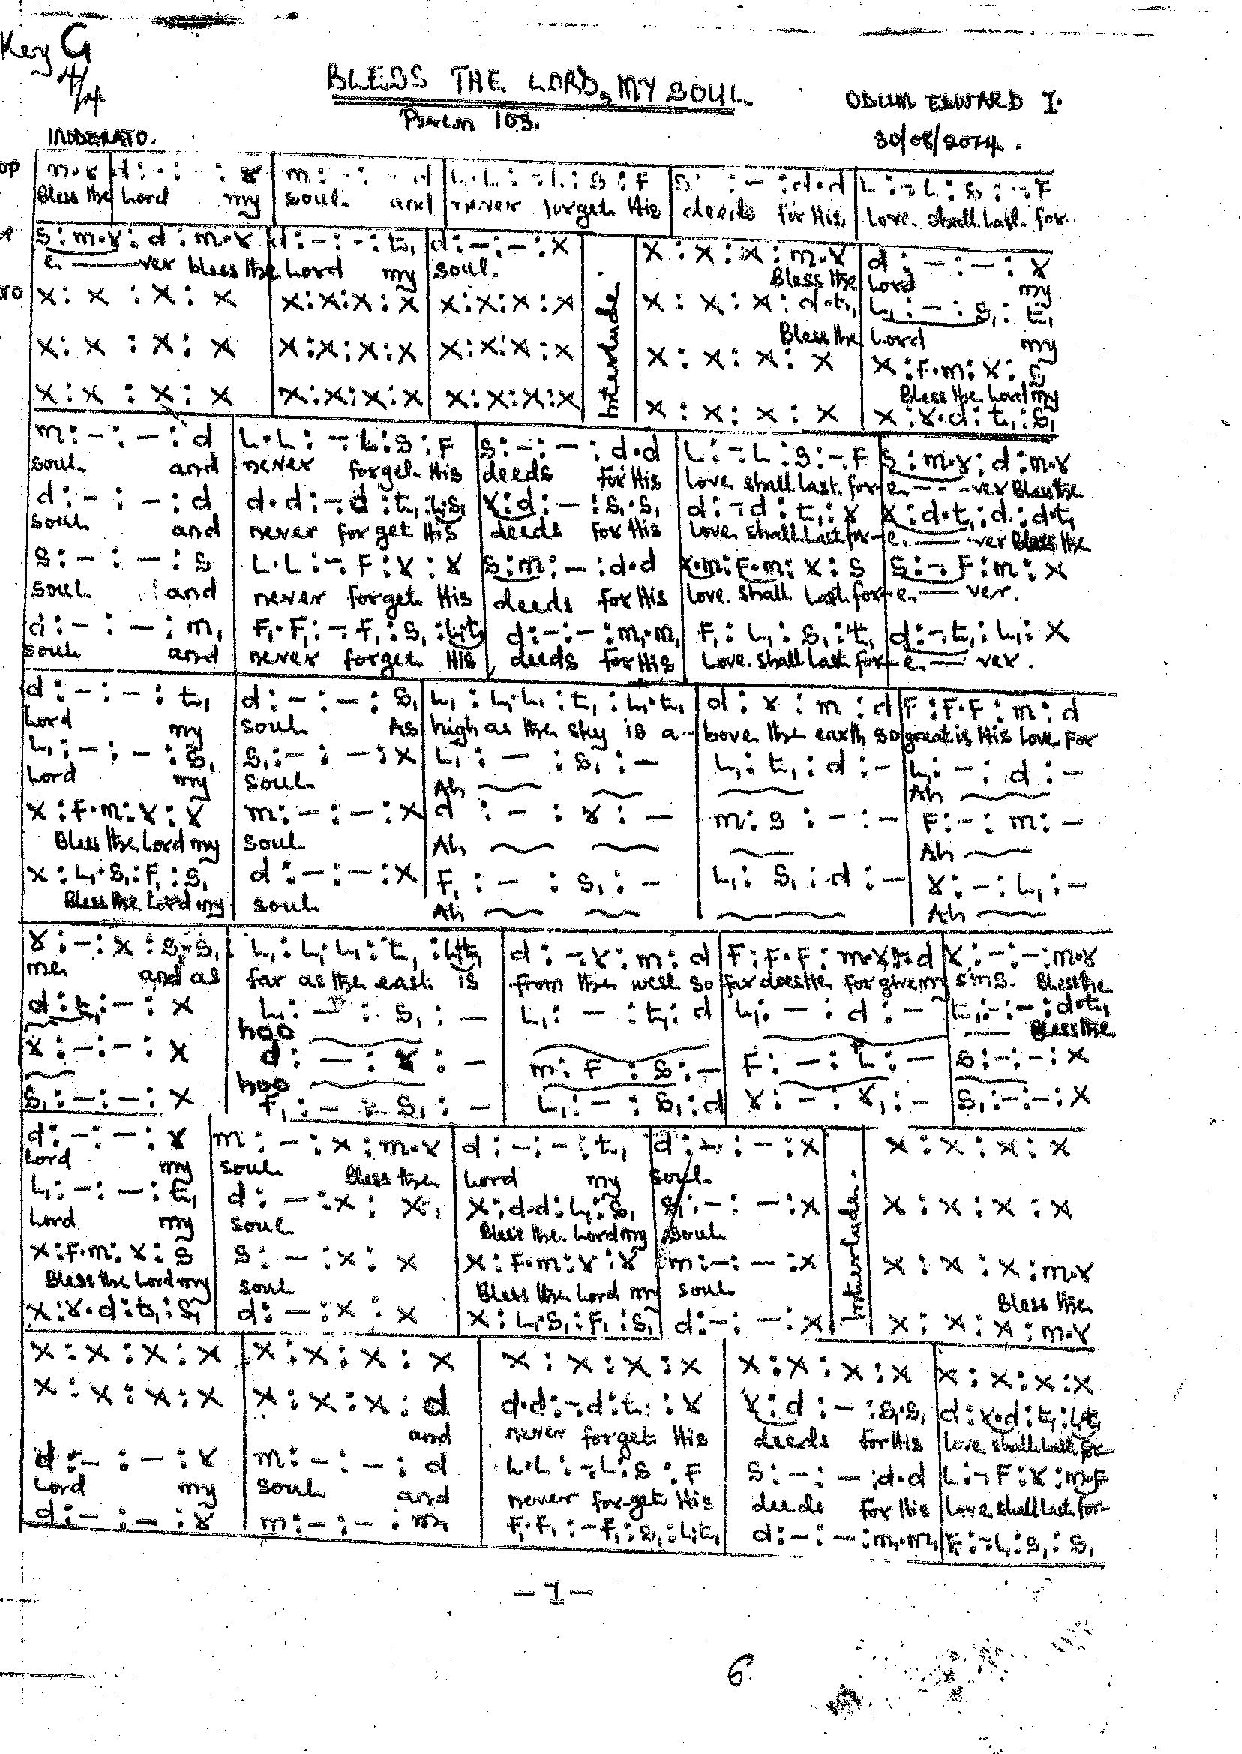 Key G
4/4
BLESS THE LORD, MY SOUL
Psalm 103.
ODUM EDWARD I.
MODERATO.
30/08/2014.
m.r d : - : - : r m : - : - : d L.L : -.L : s : F s : - : - : d.d L : -.L : s : -.F
Bless the Lord my soul and never forget His deeds for His Love shall last for
s : m.r : d : m.r d : - : - : t, d : - : - : x x : x : x : m.r d : - : - : r
e ver bless the Lord my soul. Bless the Lord my
x : x : x : x x : x : x : x x : x : x : x x : x : x : d.t,
Bless the Lord my
x : x : x : x x : x : x : x x : x : x : x x : x : x : x
Bless the Lord my
x : x : x : x x : x : x : x x : x : x : x Interlude. x : x : x : x x : r.d : t, : s,
m : - : - : d L.L : -.L : s : F s : - : - : d.d L : -.L : s : -.F s : m.r : d : m.r
soul and never forget His deeds for His Love shall last for e - - - ver Bless the
d : - : - : d
soul and never forget His deeds for His Love shall last for-e. ver Bless the
s : - : - : s L.L : -.F : r : r s : m : - : d.d s : -.F : m : x
soul and never forget His deeds for His love shall last for-e ver.
d : - : - : m, d : - : - : m,.m, F, : L, : s, : t, d : -.t, : L, : x
soul and never forget His deeds for His Love shall last for-e ver.
d : - : - : t, d : - : - : s, L, : L,.L, : t, : L,.t, d : r : m : d F : F.F : m : d
Lord my soul As high as the sky is a- bove the earth so great is His love for
L, : - : - : s, s, : - : - : x L, : - : s, : - L, : t, : d : - L, : - : d : -
Lord my soul Ah Ah
x : F.m : r : r m : - : - : x d : - : r : - m : s : - F : - : m : -
Bless the Lord my soul Ah Ah
x : L,.s, : F, : s, d : - : - : x F, : - : s, : - L, : s, : d : - r : - : L, : -
Bless the Lord my soul Ah Ah
r : - : x : s,.s, d : -.r : m : d r : - : - : m.r
me and as far as the east is from the west so far does He forgive my sins. Bless the
d : t, : - : x L, : - : s, : - L, : - : t, : d L, : - : d : - t, : - : - : d.t,
hoo Bless the
r : - : - : x d : - : r : - m : F : s : - F : - : L : - s : - : - : x
hoo
s, : - : - : x F, : - : s, : - L, : - : s, : d s, : - : - : x
d : - : - : r m : - : x : m.r d : - : - : t, d : - : - : x x : x : x : x
Lord my soul Bless the Lord my soul.
d : - : x : x x : d.d : L, : s, s, : - : - : x x : x : x : x
Lord my soul Bless the Lord my soul
x : F.m : r : s s : - : x : x x : F.m : r : r m : - : - : x x : x : x : m.r
Bless the Lord my soul Bless the Lord my soul Bless the
x : r.d : t, : s, d : - : x : x x : L,.s, : F, : s, d : - : - : x Interlude. x : x : x : m.r
x : x : x : x x : x : x : x x : x : x : x x : x : x : x x : x : x : x
x : x : x : x x : x : x : d d.d : -.d : t, : r r : d : - : s,.s,
and never forget His deeds for His love shall last for
d : - : - : r m : - : - : d L.L : -.L : s : F s : - : - : d.d L : -.F : r : m.F
Lord my soul and never for-get His deeds for His Love shall last for-
d : - : - : r m : - : - : m, F,.F, : -.F, : s, : L,.t, d : - : - : m,.m, F, : -.L, : s, : s,
-1-
6